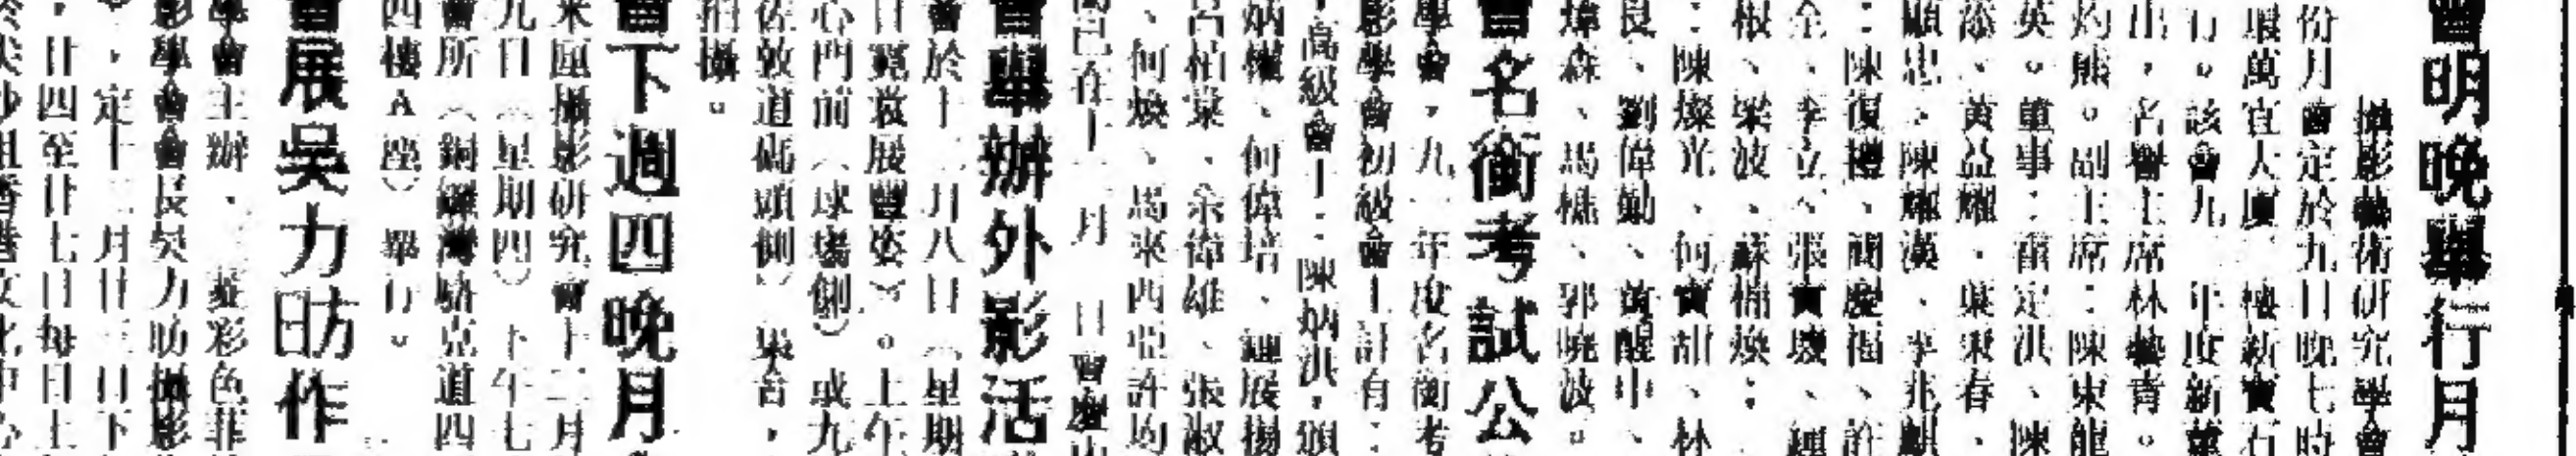 會明晚舉行月
攝影藝術研究學會
份月會定於九日晚七時
環萬宜大廈 樓新寶石
行。該會九 年度新董
出，名譽主席林藝青。
灼熊。副主席：陳東龍
英。董事：雷定洪、陳
添、黃益耀、葉東春、
顯忠、陳耀漢、李兆麒
：陳復禮、簡慶福、許
全、李立、張寶 、鍾
根、梁波、蘇棉煥；
：陳燦光、何寶甜、林
良、劉偉勳、黃醒中、
煒森、馬樵、郭曉波。
會名銜考試公
學會，九一年度名銜考
影學會初級會士計有：
，高級會士：陳炳洪，頒
炳權、何偉培、 展揚
呂柏 、余偉雄、張淑
、何煥、馬來西亞許均
已在十一月 日
會舉辦外影活
會於十二月八日（星期
日 裳展豐姿）。上午
心門前（球場側）或九
佐敦道碼頭側） 集合，
拍攝。
會下週四晚月
來匯攝影研究會十二月
九日（星期四）下午七
會所（銅鑼灣駱克道四
四樓A座）舉行。
會展吳力昉作
學會主辦， 菲彩色菲
影學會會長吳力昉攝影
，定十二月廿三日下
，廿四至廿七日每日上
於尖沙咀香港文化中心